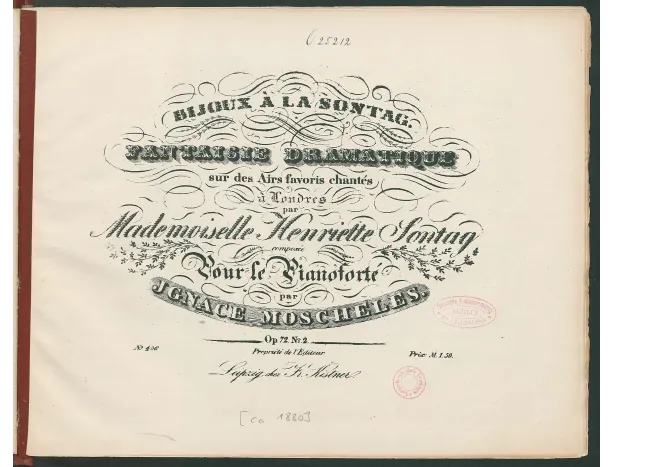 C 25212
BIJOUX À LA SONTAG.
FANTAISIE DRAMATIQUE
sur des Airs favoris chantés
à Londres
par
Mademoiselle Henriette Sontag
composée
Pour le Pianoforte
par
JGNACE MOSCHELES.
Op 72. No. 2.
Propriété de l'Editeur
Prix M. 1.50.
Leipzig, chez Fr. Kistner.
[ca 1880]